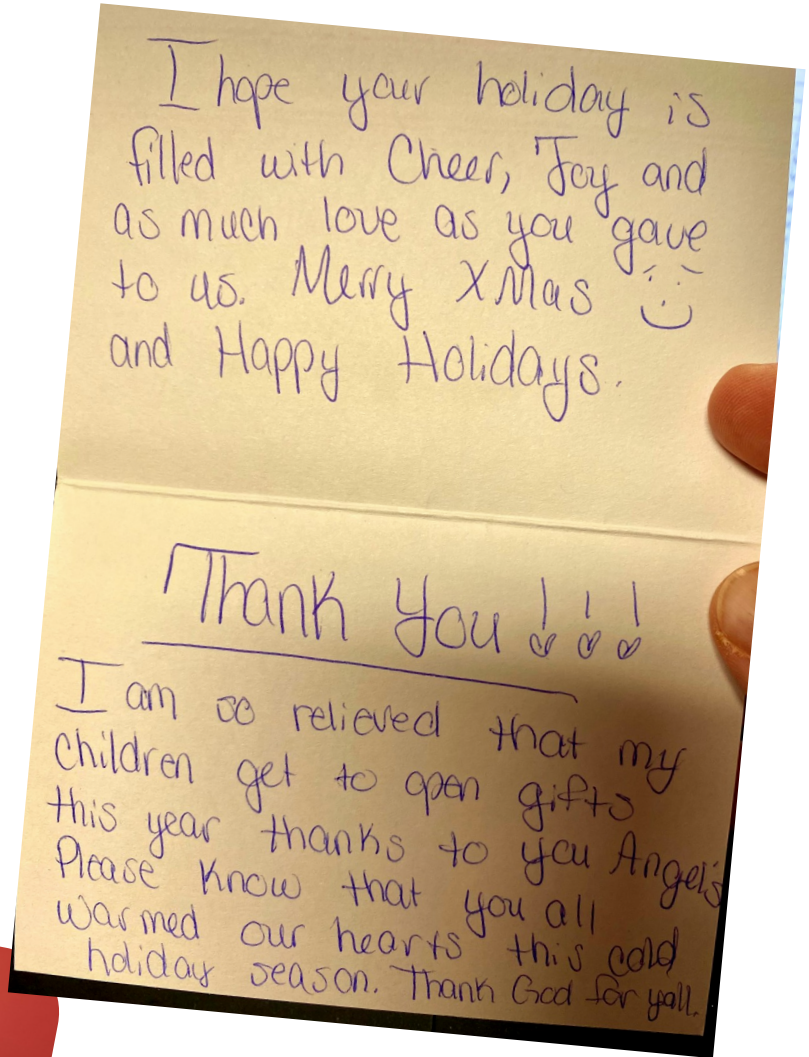 I hope your holiday is
filled with Cheer, Joy and
as much love as you gave
to us. Merry XMas
and Happy Holidays.
Thank You!!!
I am so relieved that my
children get to open gifts
this year thanks to you Angel's
Please know that you all
warmed our hearts this cold
holiday season. Thank God for yall.